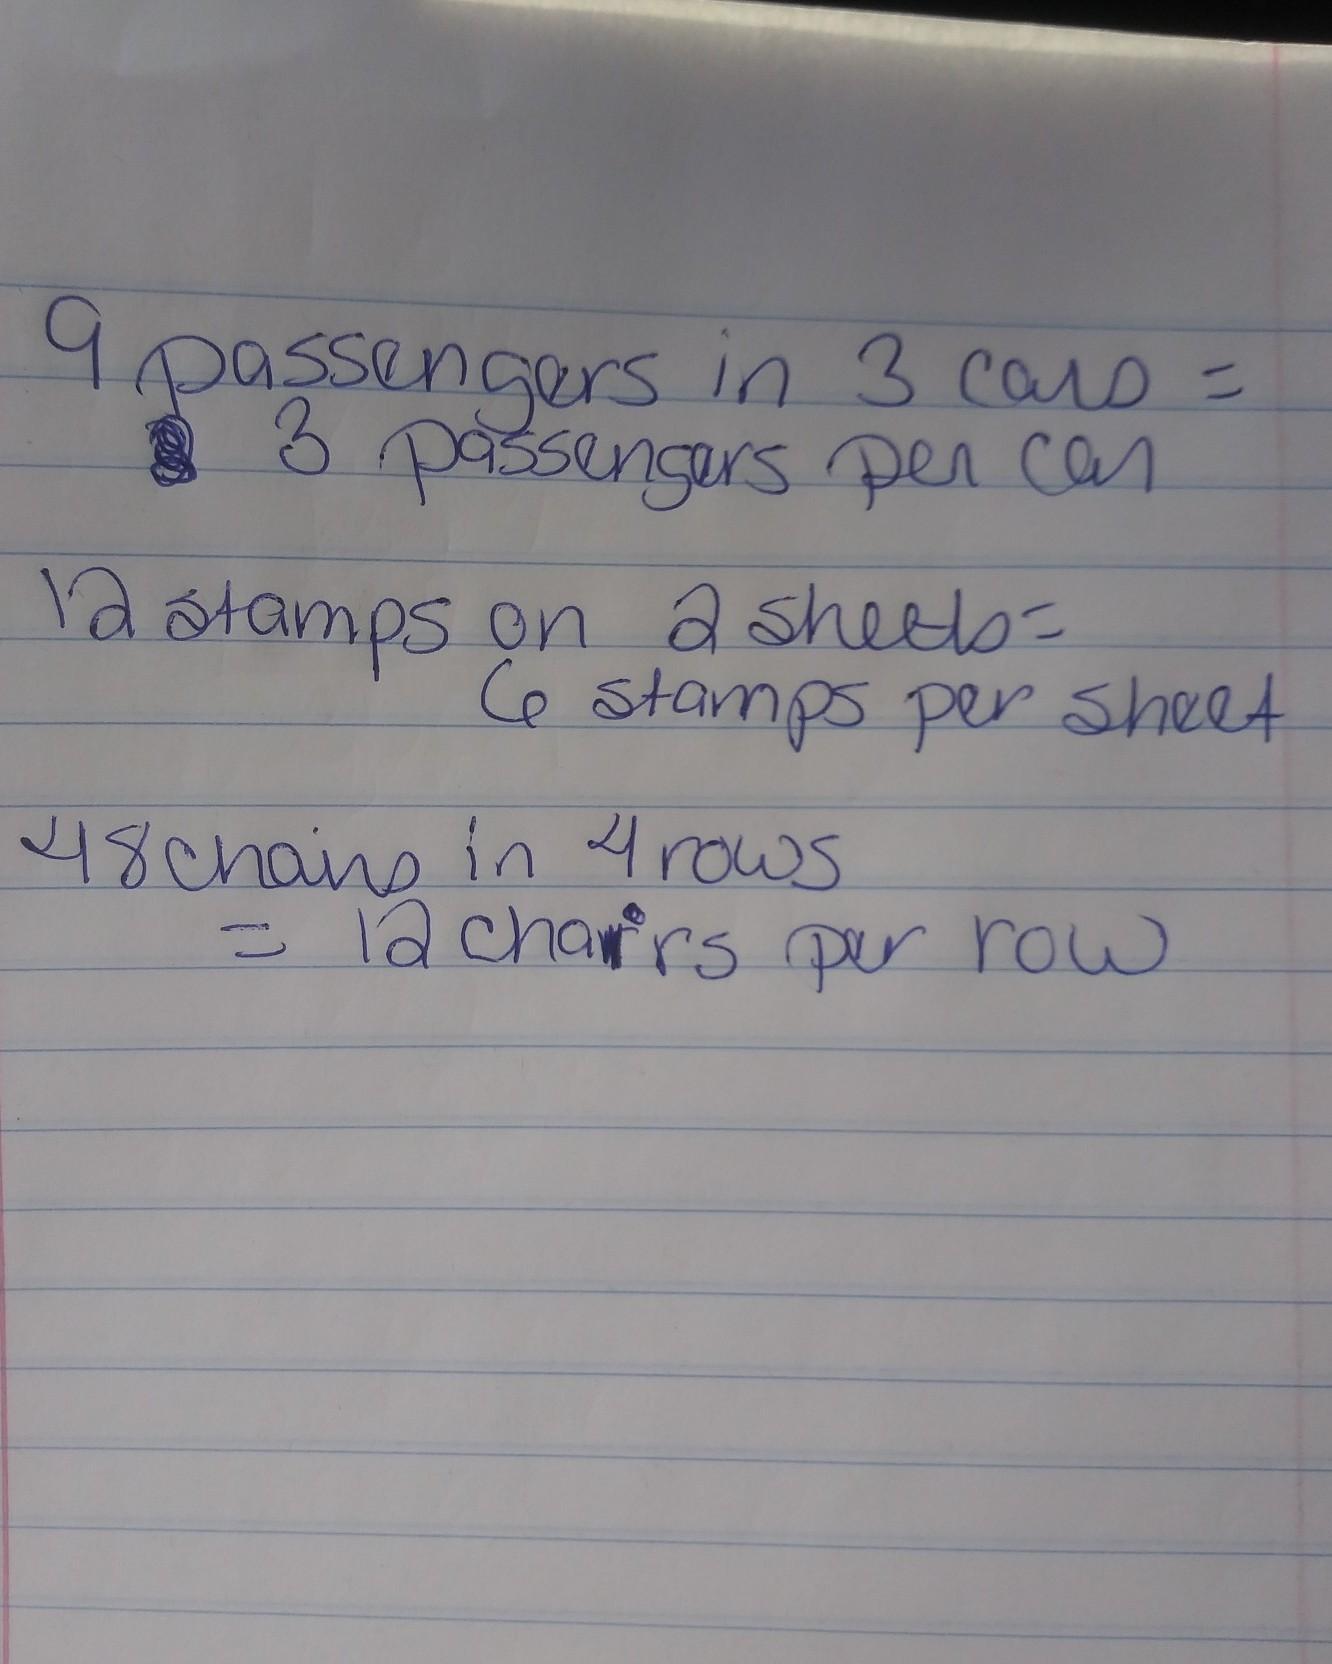 9 passengers in 3 cars =
3 passengers per car
12 stamps on 2 sheets=
6 stamps per sheet
48 chairs in 4 rows
= 12 chairs per row